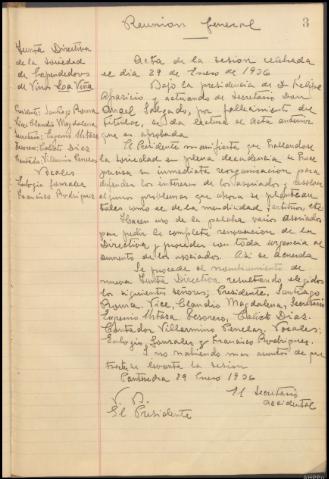 Reunion General
3
Junta Directiva
de la Sociedad
de Expendedores
de Vinos La Viña
Presidente: Santiago Roma
Vice: Claudio Magdalena
Secretario: Eugenio
Tesorero: Calisto Diaz
Contador Villermino Penelas
Vocales
Eulogio Gonzalez
Francisco Rodriguez
Acta de la sesion celebrada
el dia 29 de Enero de 1936
Bajo la presidencia de D. Felipe
Aparicio y actuando de Secretario Don
Angel Salgado, por fallecimiento del
titular, es leida el Acta anterior
que es aprobada.
El Presidente manifiesta que hallandose
la Sociedad en plena decadencia se hace
precisa su inmediata reorganizacion para
defender los intereses de los asociados y resolver
algunos problemas que ahora se plantean
tales como el de la mendicidad, festivos, etc.
Hacen uso de la palabra varios asociados
para pedir la completa renovacion de la
Directiva y proceder con toda urgencia al
aumento de los asociados. Asi se acuerda
Se procede al nombramiento de
nueva Junta Directiva resultando elegidos
los siguientes señores: Presidente, Santiago
Roma. Vice, Claudio Magdalena, Secretario
Eugenio Tesorero, Calisto Diaz.
Contador Villermino Penelas, Vocales:
Eulogio Gonzalez y Francisco Rodriguez.
Y no habiendo mas asuntos de que
tratar se levanta la sesion
Pontevedra 29 Enero 1936
V. B.
El Presidente
El Secretario
accidental